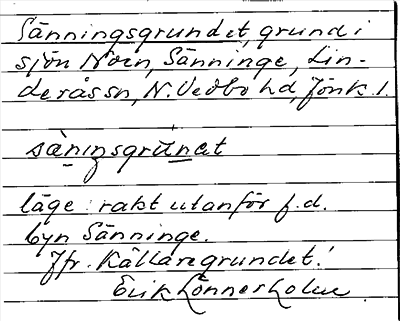 Sänningsgrundet, grund i
sjön Noen, Sänninge, Lin-
deråssn, N. Vedbo hd, Jönk. l.
sàningsgrúnat
läge: rakt utanför f.d.
byn Sänninge.
Jfr. Källaregrundet!
Erik Lönnerholm.